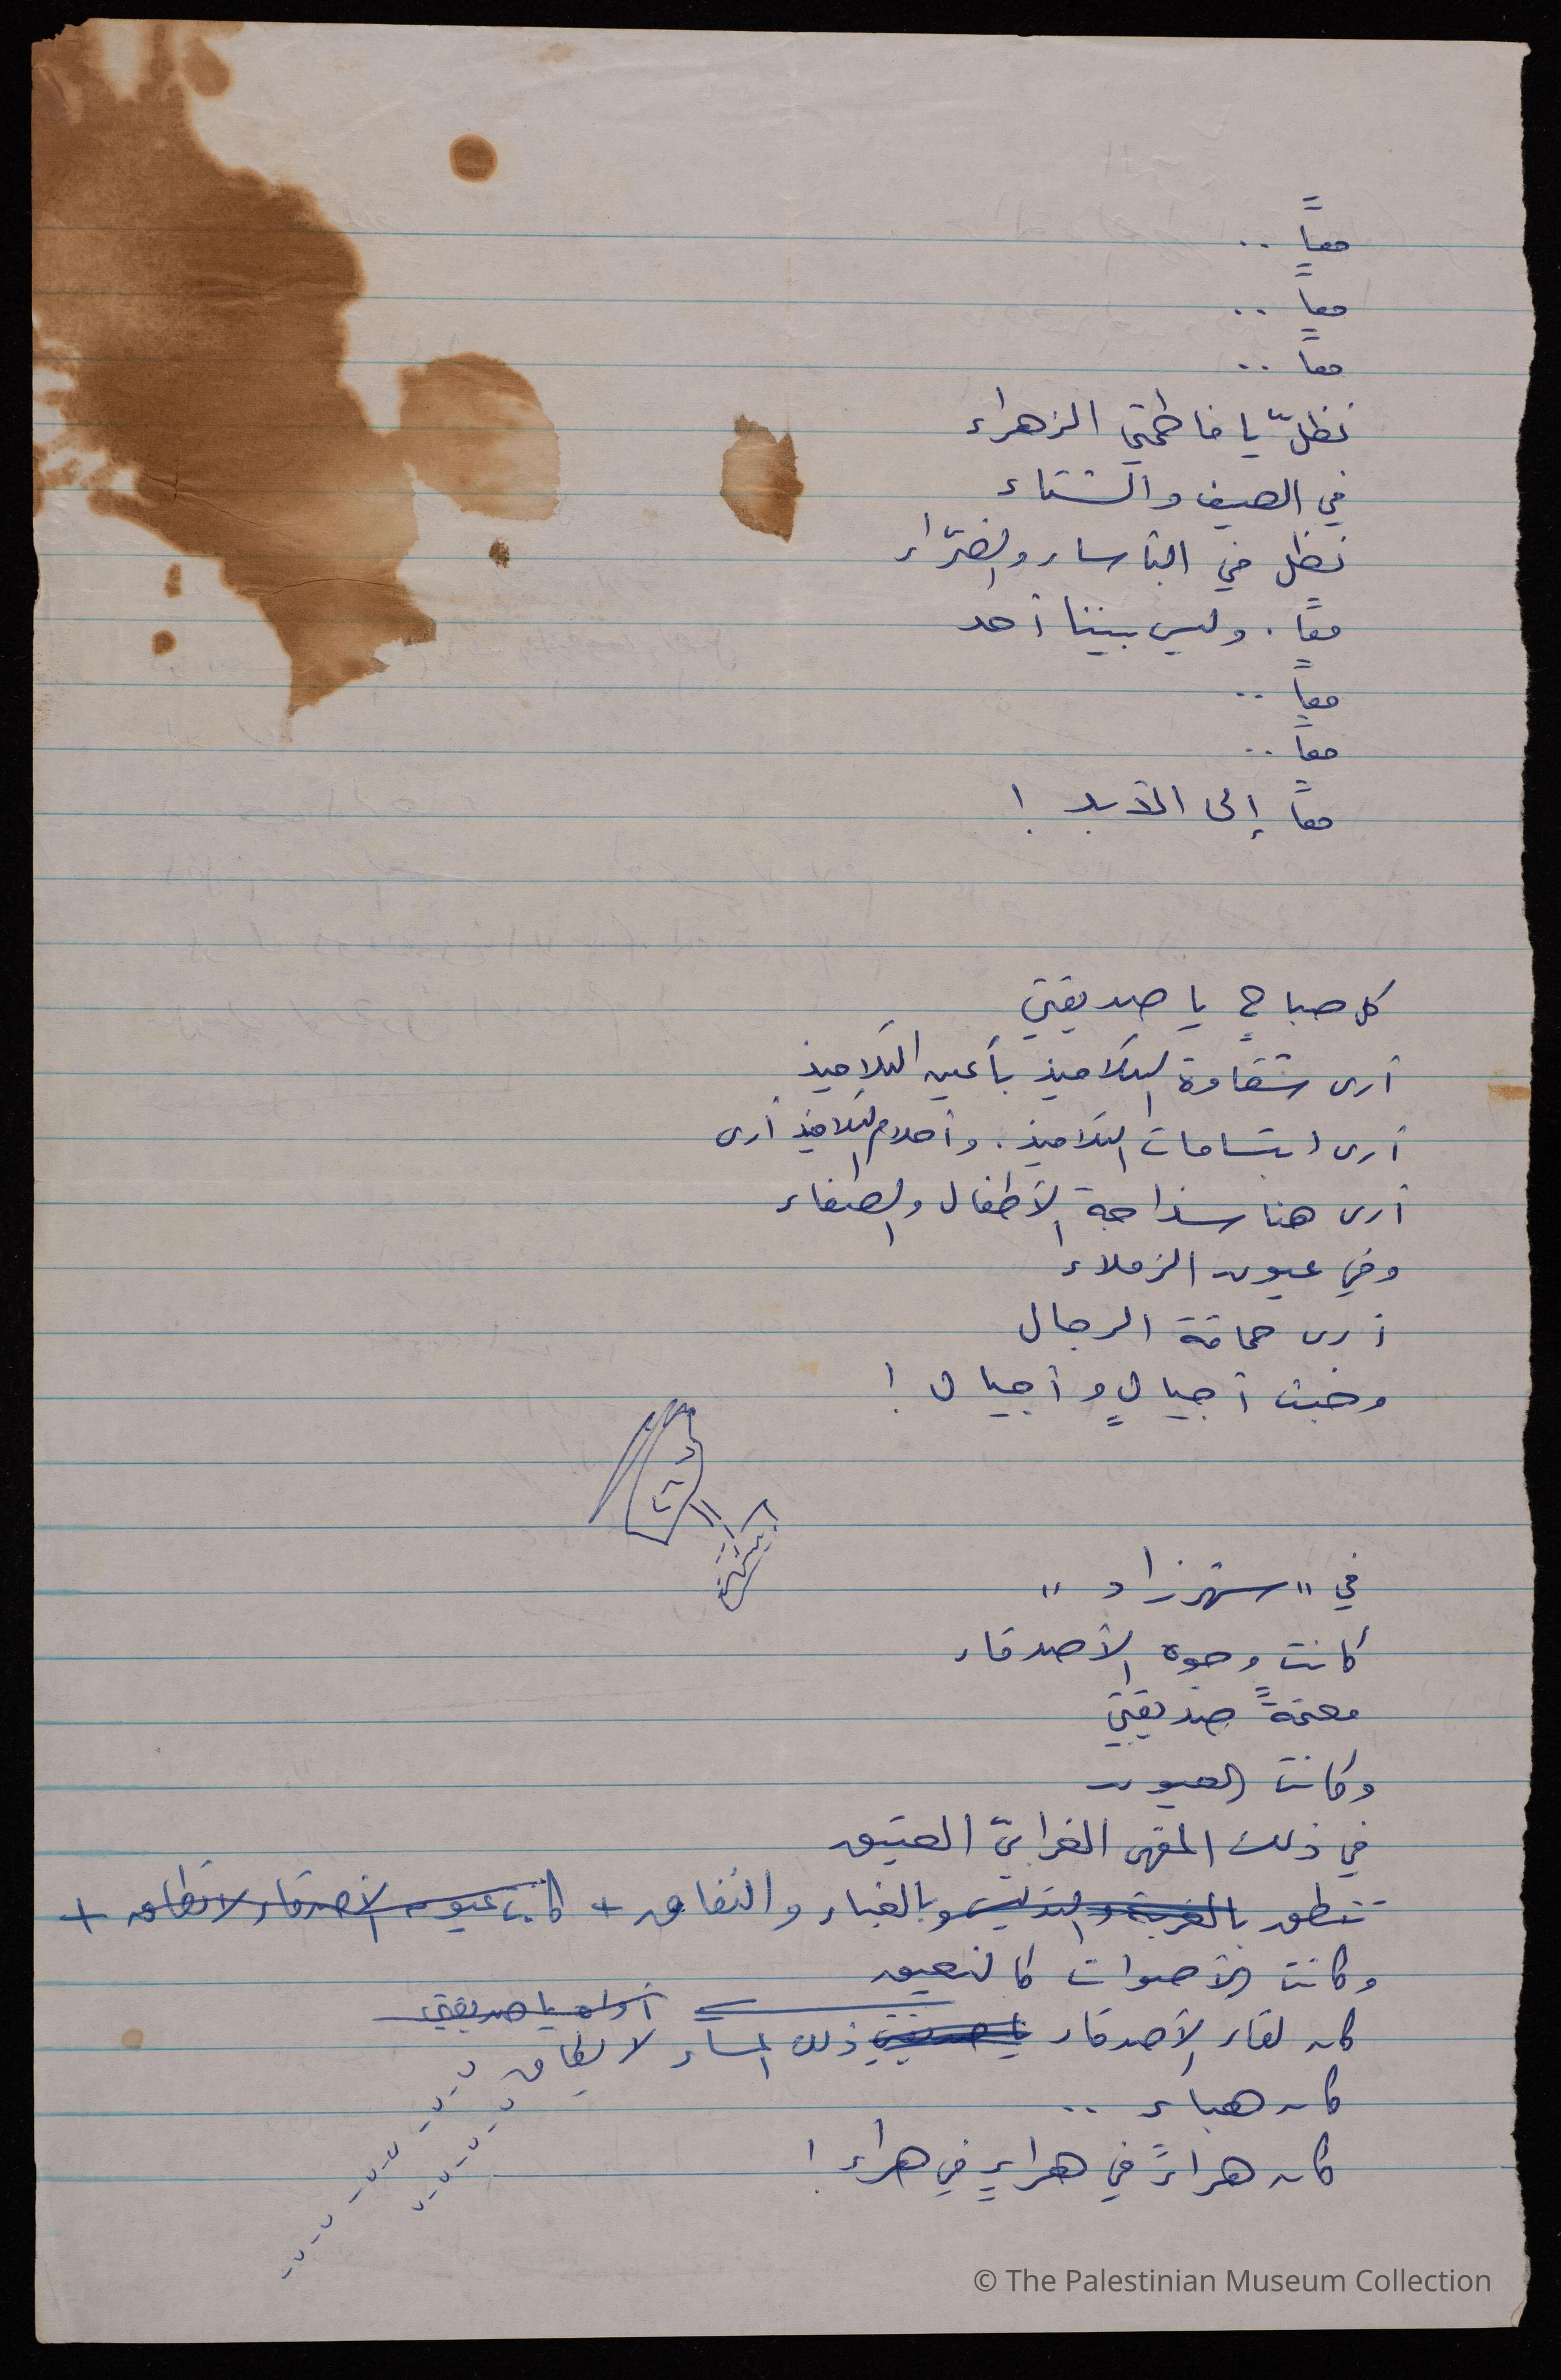 معاً ..
معاً ..
معاً ..
نظلّ يا فاطمتي الزهراء
في الصيف والشتاء
نظل في البأساء والضرّاء
معاً . وليس بيننا أحد
معاً ..
معاً ..
معاً إلى الأبد !
كل صباحٍ يا صديقتي
أرى شقاوة التلاميذ بأعين التلاميذ
أرى ابتسامات التلاميذ . وأحلام التلاميذ أرى
أرى هنا سذاجة الأطفال والصفاء
وفي عيون الزملاء
أرى حماقة الرجال
وخبث أجيالٍ وأجيال !
في "شهرزاد"
كانت وجوه الأصدقاء
معتمةً صديقتي
وكانت العيون
في ذلك المقهى الغرابيّ العتيق
تنطق بالغربة وبالغباء والنفاق + كانت عيون الأصدقاء لا تطاق +
وكانت الأصوات كالنعيق
أواه يا صديقتي
كان لقاء الأصدقاء يا صديقتي ذلك المساء لا يطاق
كان هباء ..
كان هراءً في هراءٍ في هراء !
© The Palestinian Museum Collection